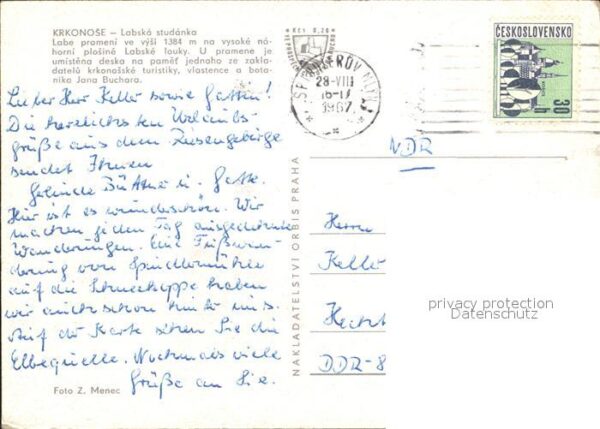 KRKONOŠE — Labská studánka
Labe pramení ve výši 1384 m na vysoké ná-
horní plošině Labské louky. U pramene je
umístěna deska na paměť jednoho ze zakla-
datelů krkonošské turistiky, vlastence a bota-
nika Jana Buchara.
Kčs 0,20
ČESKOSLOVENSKO
30 h
28-VIII
1967
Lieber Herr Keller sowie Gattin!
Die herzlichsten Urlaubs-
grüße aus dem Riesengebirge
sendet Ihnen
u. Gatte.
Hier ist es wunderschön. Wir
machen jeden Tag ausgedehnte
Wanderungen. Eine Fußwan-
derung von Spindlermühle
auf die Schneekoppe haben
wir auch schon hinter uns.
Auf der Karte sehen Sie die
Elbequelle. Nochmals viele
Grüße an Sie.
Foto Z. Menec
NAKLADATELSTVÍ ORBIS PRAHA
NDR
Herrn
Kelle
DDR-8
privacy protection
Datenschutz